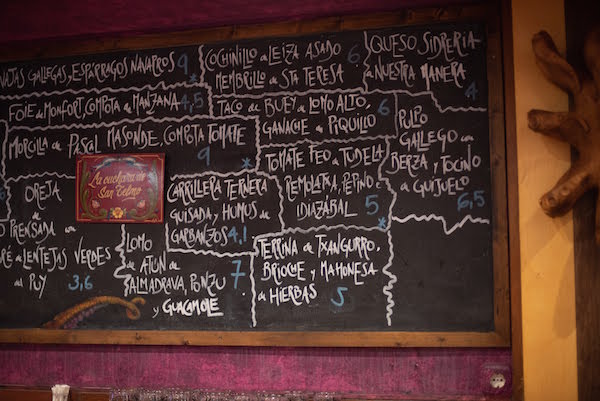 NAVAJAS GALLEGAS, ESPÁRRAGOS NAVARROS 9
FOIE de MONFORT, COMPOTA de MANZANA 4,5
MORCILLA de PASCAL MASONDE, COMPOTA TOMATE
9
La cuchara de
San Telmo
OREJA
PRENSADA con
de LENTEJAS VERDES
del PUY 3,6
COCHINILLO de LEIZA ASADO
MEMBRILLO de STA TERESA 6
TACO de BUEY de LOMO ALTO,
GANACHE de PIQUILLO 6
TOMATE FEO de TUDELA
REMOLATXA, PEPINO e
IDIAZÁBAL 5
CARRILLERA TERNERA
GUISADA y HUMUS de
GARBANZOS 4,1
LOMO
de ATÚN de
ALMADRAVA, PONZU 7
y GUACAMOLE
TERRINA de TXANGURRO,
BRIOCHE y MAHONESA
de HIERBAS 5
QUESO SIDRERIA
a NUESTRA MANERA
4
PULPO
GALLEGO con
BERZA y TOCINO
de GUIJUELO
6,5